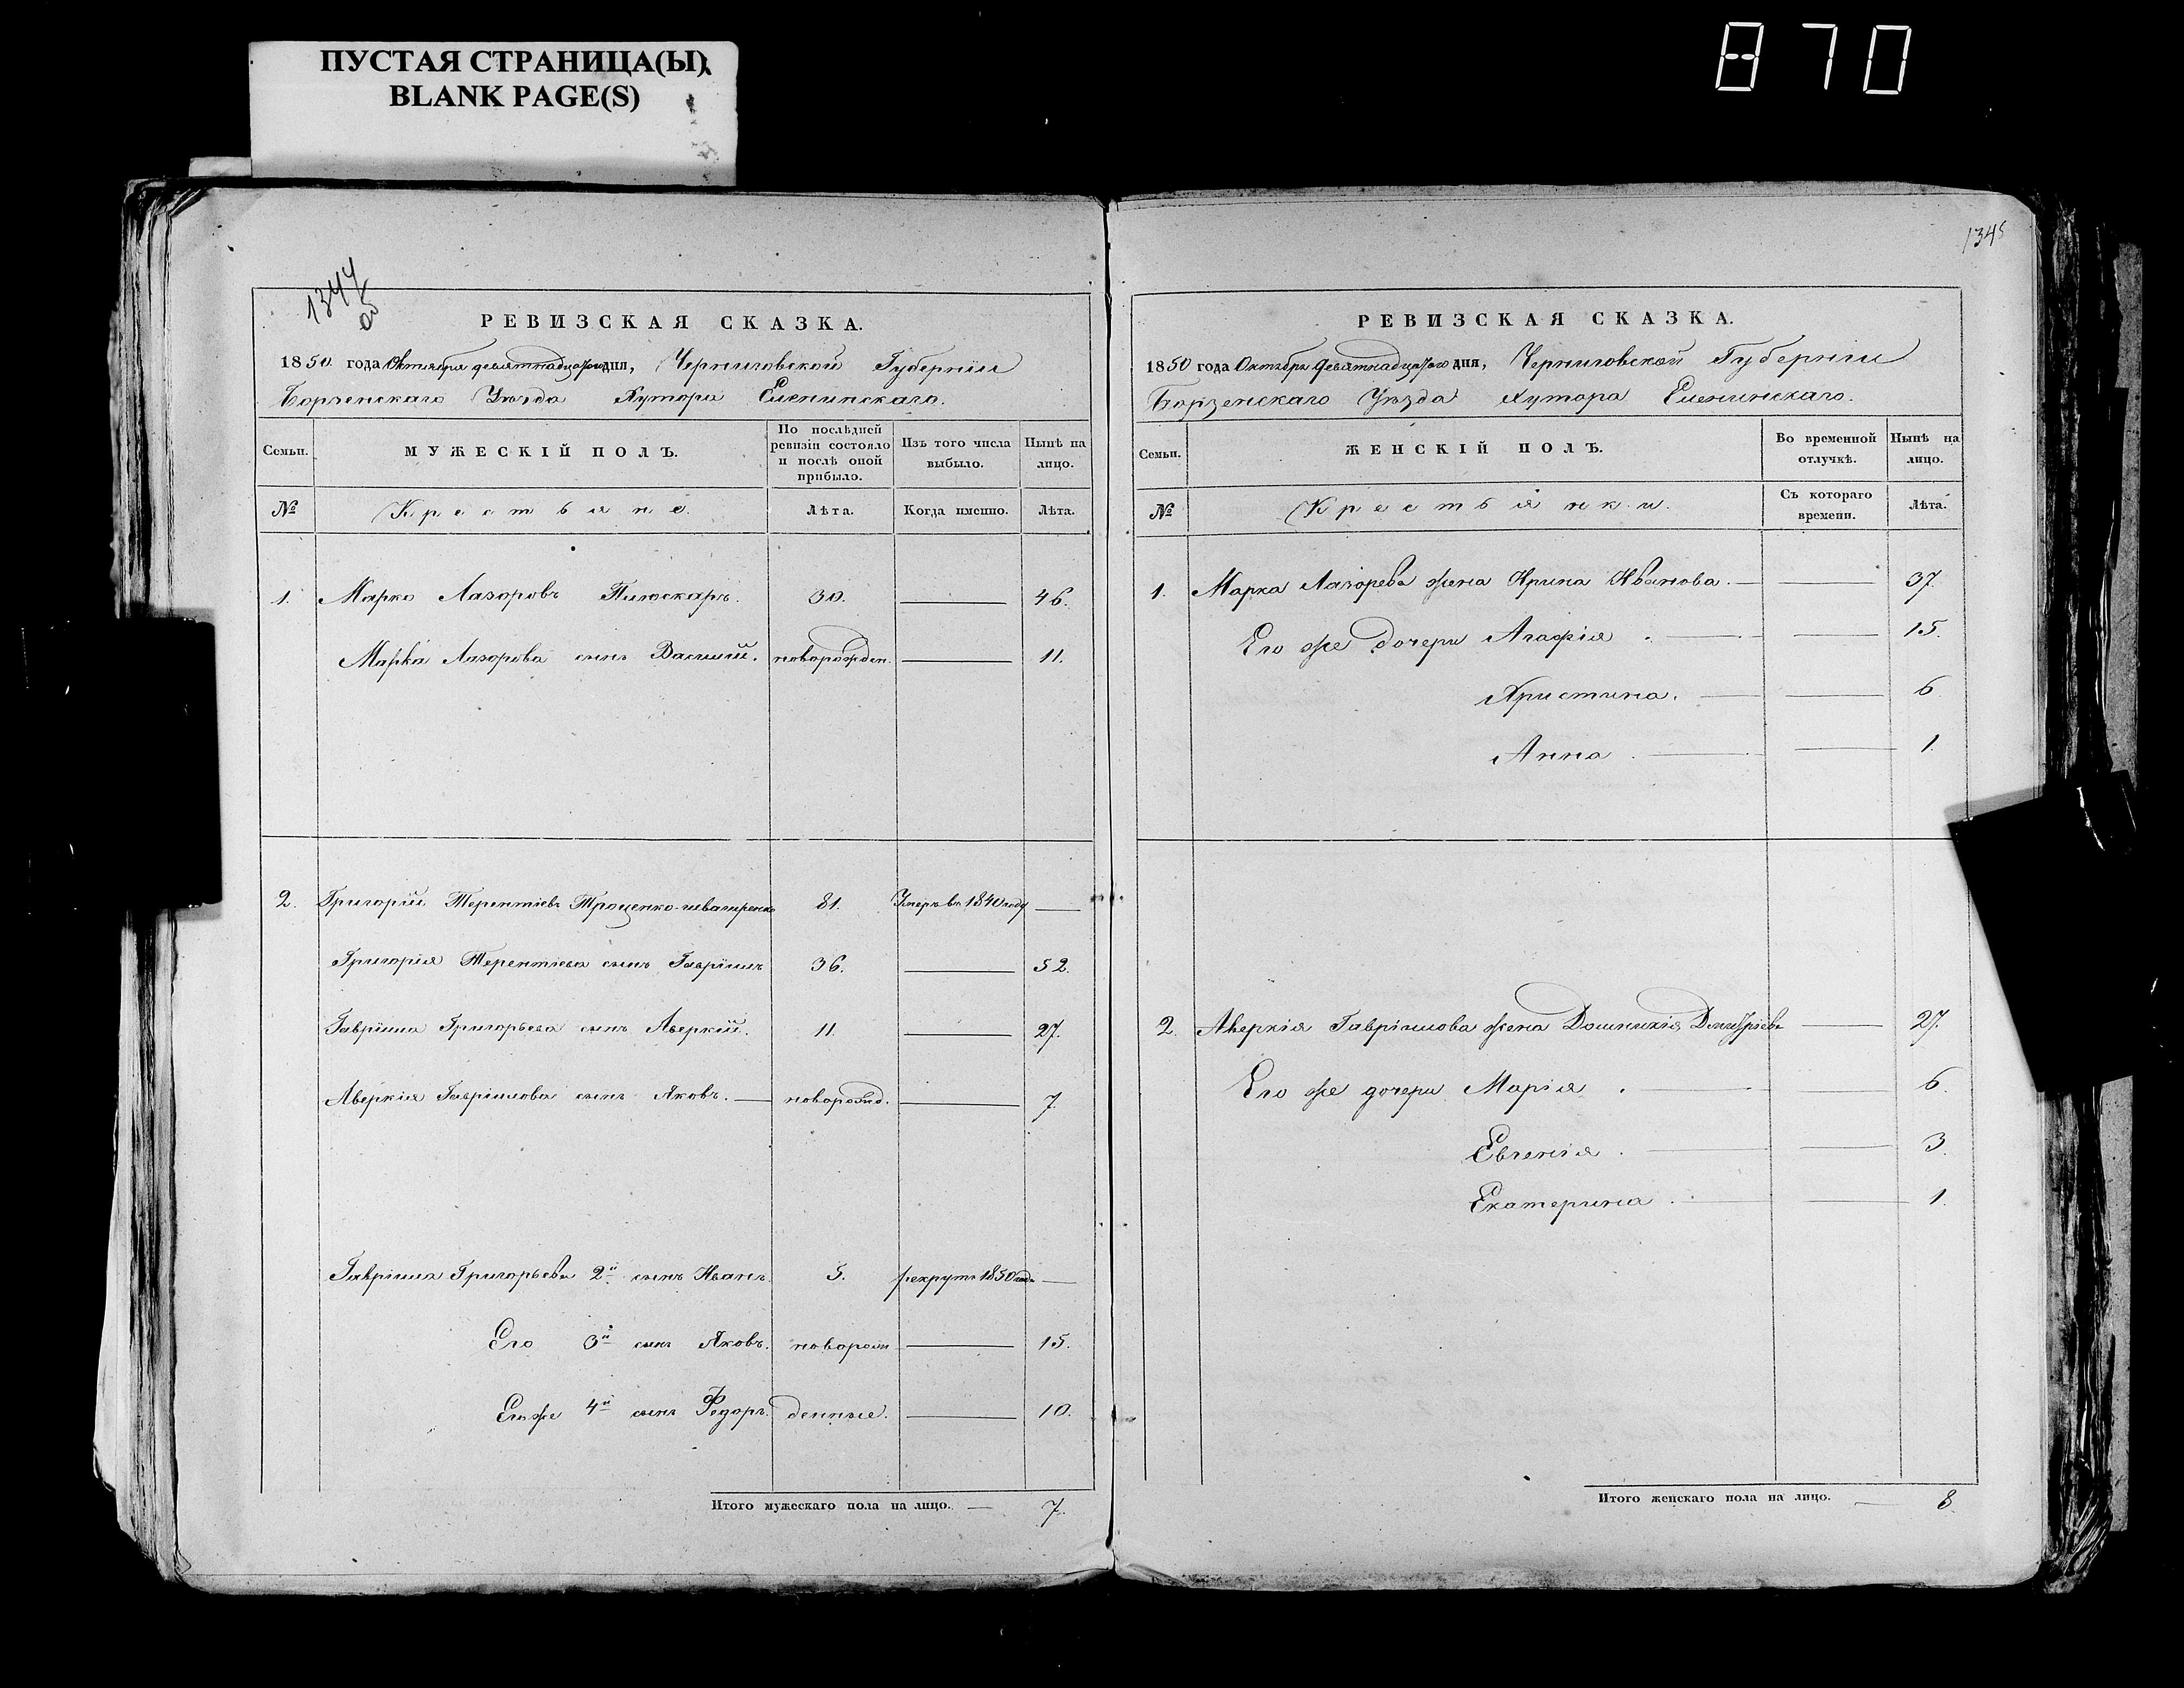 ПУСТАЯ СТРАНИЦА(Ы)
BLANK PAGE(S)
870
1344
об
РЕВИЗСКАЯ СКАЗКА.
1850. года Октября девятнадцатого дня, Черниговской Губерніи
Борзенскаго Уѣзда Хутора
Семьи. МУЖЕСКІЙ ПОЛЪ. По послѣдней ревизіи состояло и послѣ оной прибыло. Изъ того числа выбыло. Нынѣ на лицо.
№ Крестьяне. Лѣта. Когда именно. Лѣта.
1. Марко Лазоровъ 30. 46.
Марка Лазорова сынъ Василій. новорожден. 11.
2. Григорій Терентіевъ 81. Умеръ въ 1840 году
Григорія Терентіева сынъ Гавріилъ 36. 52.
Гавріила Григорьева сынъ Аверкій. 11. 27.
Аверкія Гавріилова сынъ Яковъ. новорожд. 7.
Гавріила Григорьева 2й сынъ Иванъ. 5. рекрутъ 1850 года
Его 3й сынъ Яковъ. новорож 15.
Его же 4й сынъ Федоръ. денные. 10.
Итого мужескаго пола на лицо. 7.
1345
РЕВИЗСКАЯ СКАЗКА.
1850 года Октября девятнадцатого дня, Черниговской Губерніи
Борзенскаго Уѣзда Хутора
Семьи. ЖЕНСКІЙ ПОЛЪ. Во временной отлучкѣ. Нынѣ на лицо.
№ Крестьянки. Съ котораго времени. Лѣта.
1. Марка Лазорева жена Ирина Иванова. 37.
Его же дочери Агафія 15.
Христина. 6
Анна 1.
2. Аверкія Гавріилова жена Домникія Дмитріева 27.
Его же дочери Марія 6.
Евгенія 3.
Екатерина 1.
Итого женскаго пола на лицо. 8.